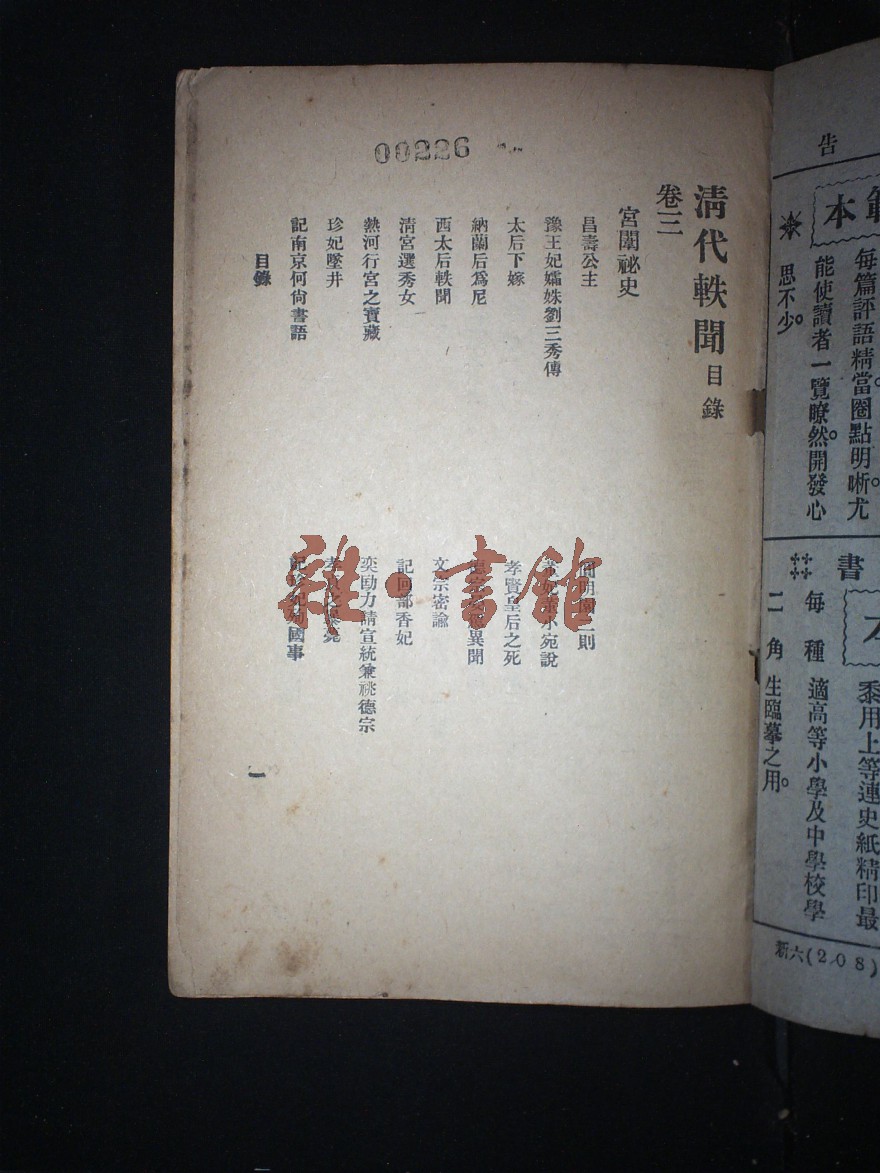 00226
清代軼聞目錄
卷三
宮闈祕史
昌壽公主
圓明園二則
豫王妃孀姝劉三秀傳
小宛說
太后下嫁
孝賢皇后之死
納蘭后爲尼
德宗異聞
西太后軼聞
文宗密諭
清宮選秀女
記回部香妃
熱河行宮之寶藏
奕劻力請宣統兼祧德宗
珍妃墜井
記南京何尙書語
國事
目錄
一
雜·書館
告
本
每篇評語精當。圈點明晰。尤
能使讀者一覽瞭然。開發心
思不少。
書
每種
二角
適高等小學及中學校學
生臨摹之用。
用上等連史紙精印最
新六(208)